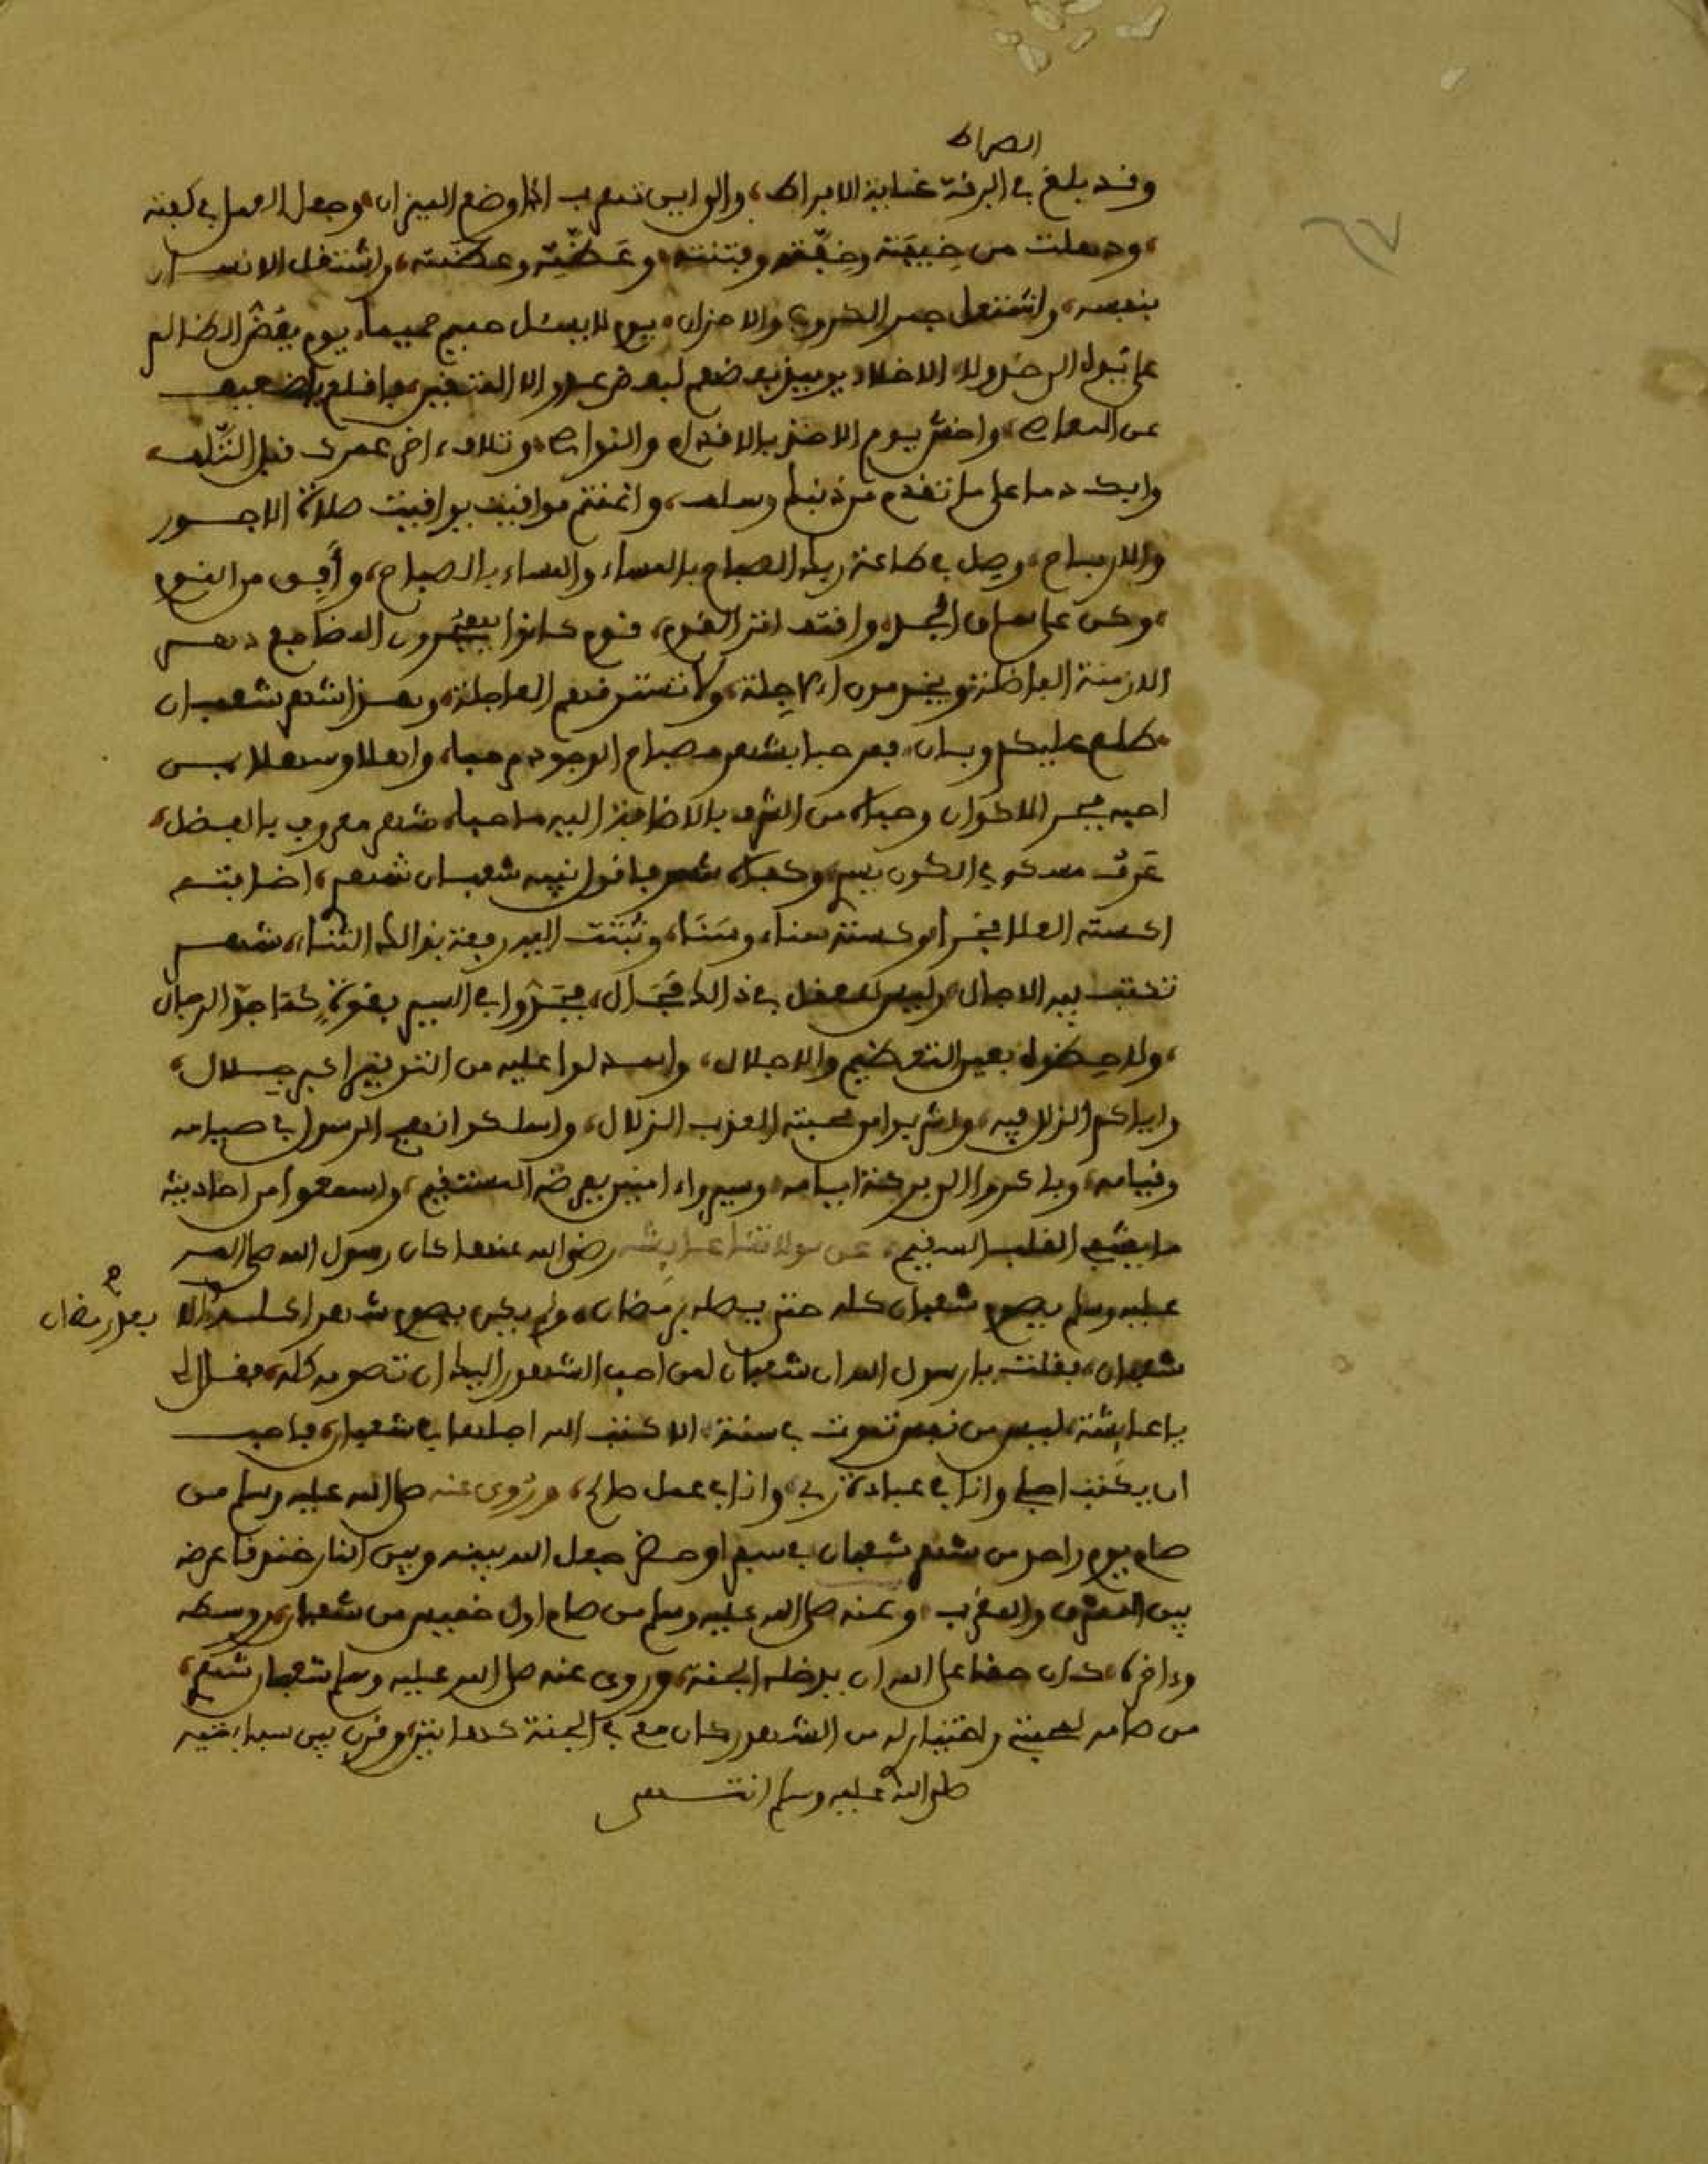 الصراط
وقد بلغ في الرقة غاية الافراط، والى اين تهرب اذا وضع الميزان، وجعل العمل في كفته
، وجعلت من خيبته وخفته وفتنته، وعظته، واشتغل الانسان
بنفسه، واشتعل جمر الكروب والاحزان، يوم لا يسئل حميم حميما، يوم يعض الظالم
على الاخلاء يومئذ بعضهم لبعض عدو الا المتقين، فاقلع يا ضعيف
عن المعاصي، واخش يوم الاخذ بالاقدام والنواصي، وتلاف اخر عمرك قبل التلف،
وابك دما على ما تقدم من ذنبك وسلف، واغتنم مواقيت يواقيت صلاة الاجور
والارباح، وصل في طاعة ربك الصباح بالمساء والمساء بالصباح، وأفق من النوم
، وكن على ساق الجد، واقتف اثر القوم، قوم كانوا يهجرون المضاجع دهر
الازمنة الفاضلة، ولا تسترقهم العاجلة، وهذا شهر شعبان
، طلع عليكم وبان، فمرحبا بشهر مصباح الوجود مرحبا، واهلا وسهلا بمن
احبه فخر الاكوان وحباه من الشرف بالاضافة اليه ما حبا، شهر معروف بالفضل،
عرف مسكه في الكون يسير، وكفاه شهرفا قول نبيه شعبان شهر، اضافته
اكسته العلا فخرا وكسته سناء وسنا، وثبتت اليه رفعة بذالك الثناء، شهر
تكتب فيه الاجال، وليس للعقل في ذالك مجال، فجدوا في السير بقوة
، ولاحظوه بعين التعظيم والاجلال، واسدلوا عليه من التوقير اكبر جلال،
واياكم الزلل فيه، واشربوا من محبته العذب الزلال، واسلكوا نهج الرسول في صيامه
وقيامه، وسيروا ءامنين بعرضه المستقيم، واسمعوا من احاديثه
ما يشفي القلب السقيم، عن مولاتنا عايشة رضي الله عنها كان رسول الله صلى الله
عليه وسلم يصوم شعبان كله حتى يصله برمضان، ولم يكن يصوم شهرا كاملا الا
بعد رمضان
شعبان، فقلت يا رسول الله ان شعبان لمن احب الشهور اليك ان تصومه كله، فقال
يا عايشة ليس من نفس تموت في سنة الا كتب الله اجلها في شعبان، فاحب
ان يكتب اجلي وانا في عبادة ربي، وانا في عمل صالح، وروي عنه صلى الله عليه وسلم من
صام يوم واحد من شهر شعبان في سفر او حضر جعل الله بينه وبين النار خندقا عرضه
بين المشرق والمغرب، وعنه صلى الله عليه وسلم من صام اول خميس من شعبان، ووسطه
وءاخره، كان حقا على الله ان يدخله الجنة، وروى عنه صلى الله عليه وسلم شعبان شهري،
من صامه لمحبته واختياره له من الشهور كان معي في الجنة كهاتين، وقرن بين سبابتيه
صلى الله عليه وسلم انتهى